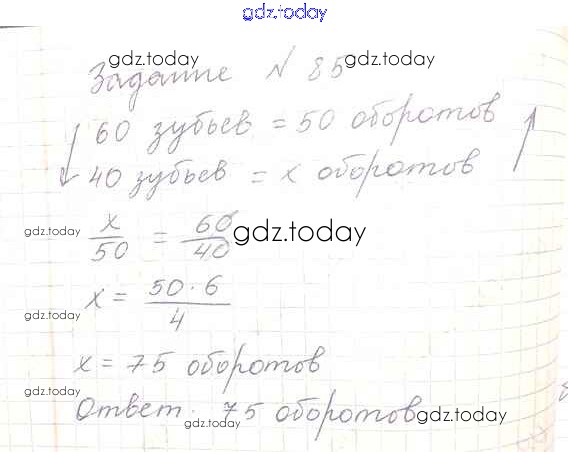 gdz.today
gdz.today gdz.today
Задание № 85
60 зубьев = 50 оборотов
40 зубьев = x оборотов
gdz.today x/50 = 60/40 gdz.today
x = 50·6/4
gdz.today
x = 75 оборотов
gdz.today
Ответ. 75 оборотов gdz.today